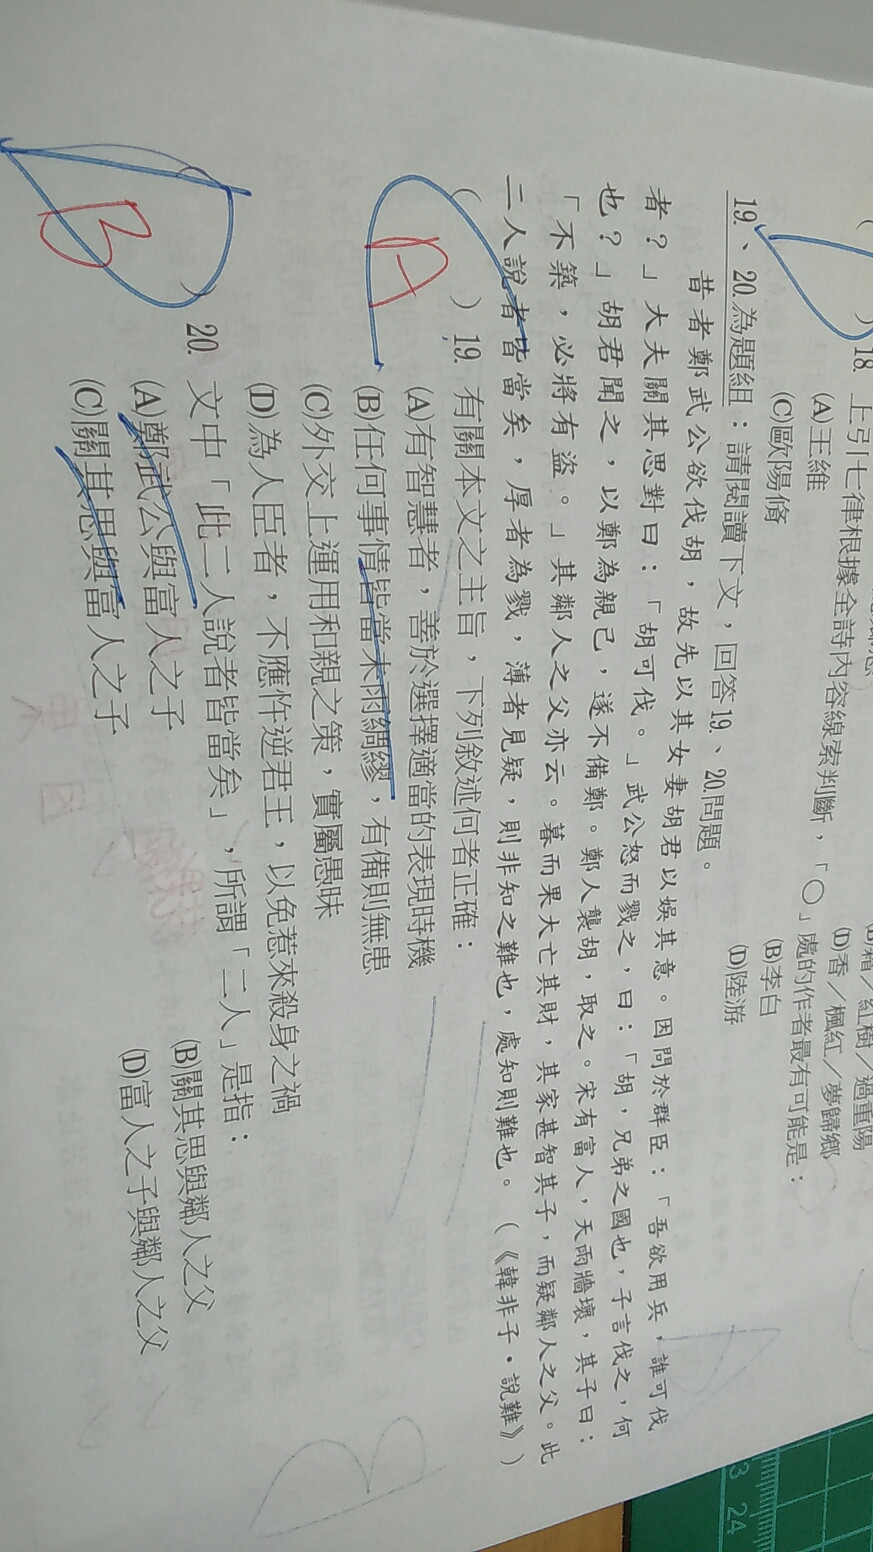 (D)香／楓紅／夢歸鄉
18. 上引七律根據全詩內容線索判斷，「○」處的作者最有可能是：
(A)王維 (B)李白
(C)歐陽脩 (D)陸游
19.、20.為題組：請閱讀下文，回答19.、20.問題。
昔者鄭武公欲伐胡，故先以其女妻胡君以娛其意。因問於群臣：「吾欲用兵，誰可伐
者？」大夫關其思對曰：「胡可伐。」武公怒而戮之，曰：「胡，兄弟之國也，子言伐之，何
也？」胡君聞之，以鄭為親己，遂不備鄭。鄭人襲胡，取之。宋有富人，天雨牆壞，其子曰：
「不築，必將有盜。」其鄰人之父亦云。暮而果大亡其財，其家甚智其子，而疑鄰人之父。此
二人說者皆當矣，厚者為戮，薄者見疑，則非知之難也，處知則難也。（《韓非子‧說難》）
A ( ) 19. 有關本文之主旨，下列敘述何者正確：
(A)有智慧者，善於選擇適當的表現時機
(B)任何事情皆當未雨綢繆，有備則無患
(C)外交上運用和親之策，實屬愚昧
(D)為人臣者，不應忤逆君王，以免惹來殺身之禍
B ) 20. 文中「此二人說者皆當矣」，所謂「二人」是指：
(A)鄭武公與富人之子 (B)關其思與鄰人之父
(C)關其思與富人之子 (D)富人之子與鄰人之父
3 24